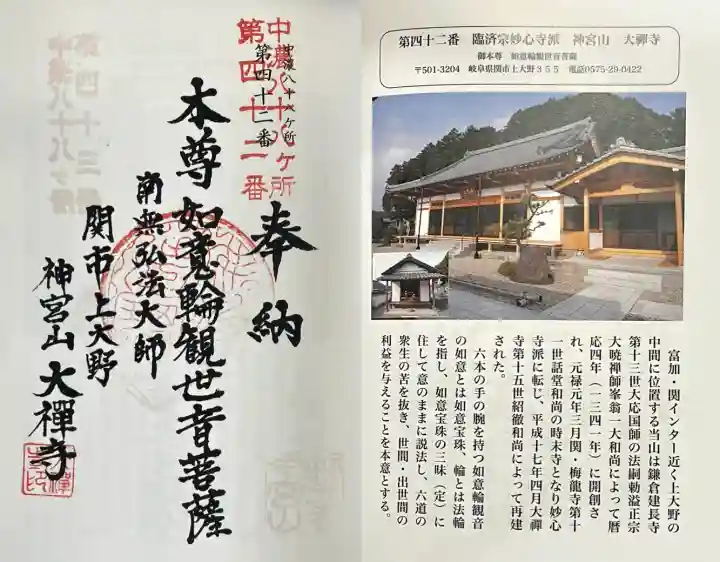 中濃八十八ヶ所
第四十二番
中濃八十八ヶ所
第四十二番
奉納
本尊如意輪観世音菩薩
南無弘法大師
関市上大野
神宮山大禅寺
第四十二番 臨済宗妙心寺派 神宮山 大禅寺
御本尊 如意輪観世音菩薩
〒501-3204 岐阜県関市上大野３５５ 電話0575-29-0422
富加・関インター近く上大野の
中間に位置する当山は鎌倉建長寺
第十三世大応国師の法嗣勅溢正宗
大暁禅師峯翁一大和尚によって暦
応四年（一三四一年）に開創さ
れ、元禄元年三月関・梅龍寺第十
一世話堂和尚の時末寺となり妙心
寺派に転じ、平成十七年四月大禅
寺第十五世紹徹和尚によって再建
された。
六本の手の腕を持つ如意輪観音
の如意とは如意宝珠、輪とは法輪
を指し、如意宝珠の三昧（定）に
住して意のままに説法し、六道の
衆生の苦を抜き、世間・出世間の
利益を与えることを本意とする。